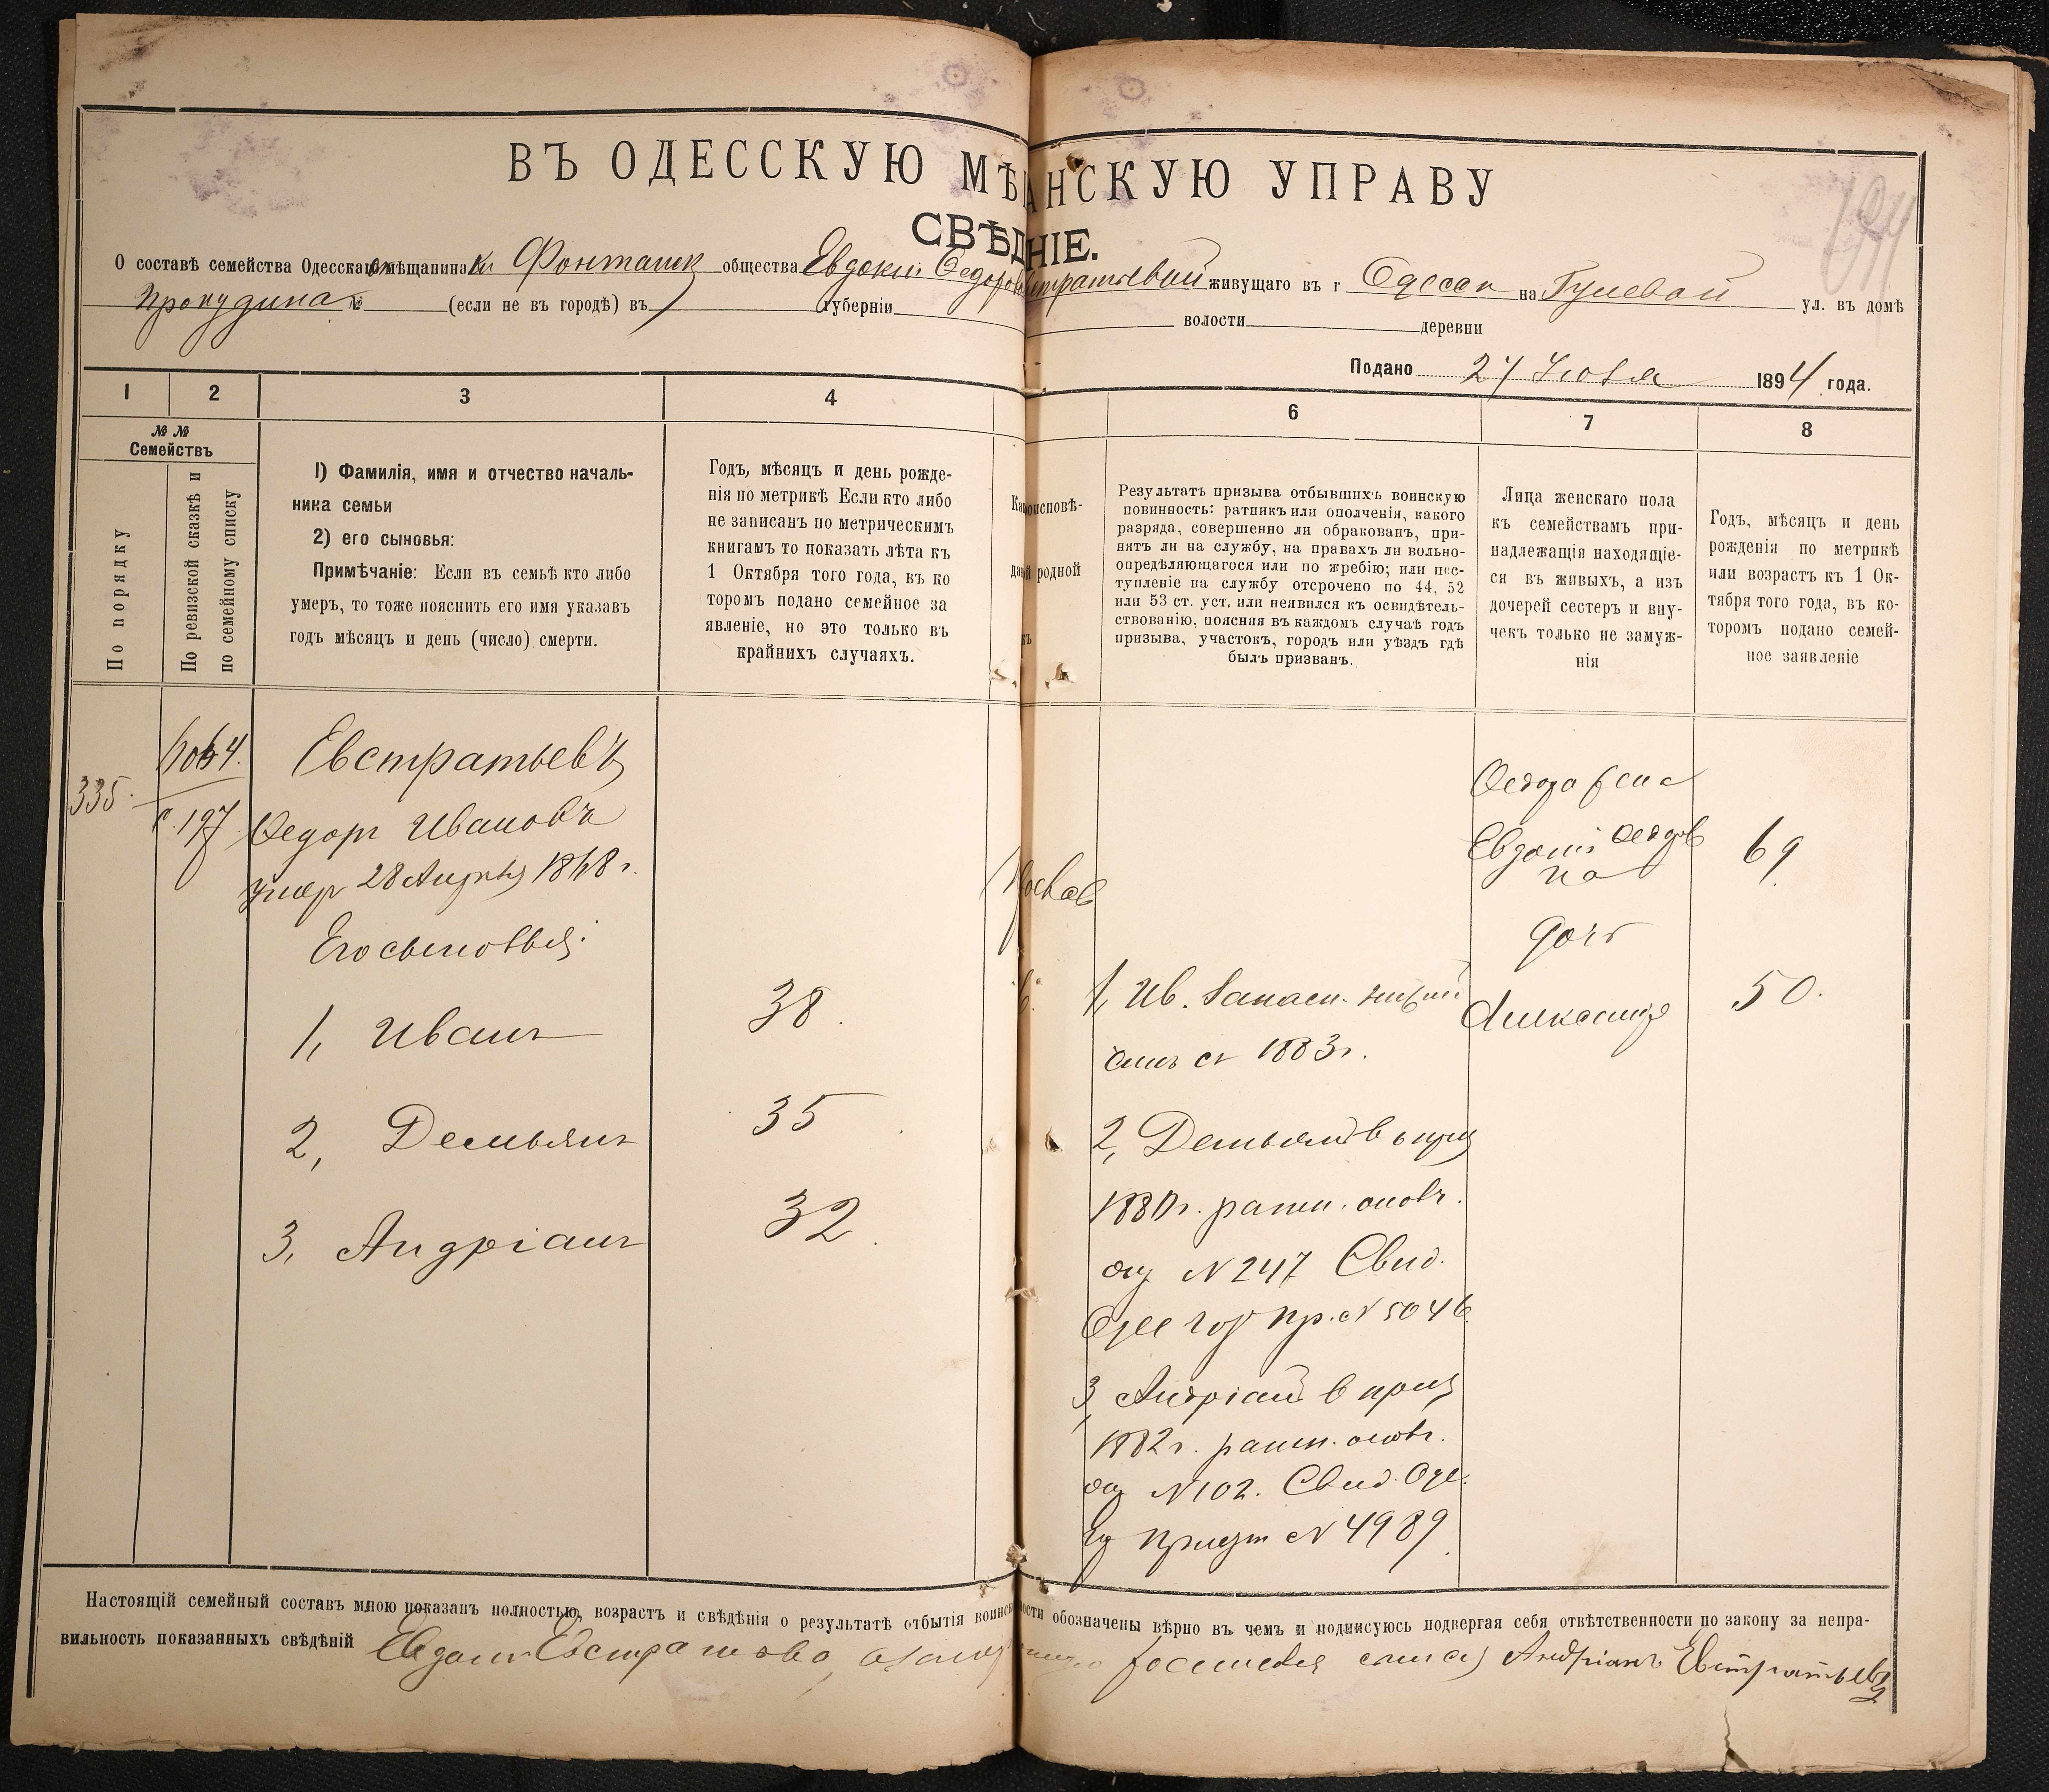 ВЪ ОДЕССКУЮ МѢ АНСКУЮ УПРАВУ
СВѢД НІЕ.
О составѣ семейства Одесска мѣщанина ки Фонтанск общества Евдокіи Федоров стратьевой живущаго въ г Одессѣ на ул. въ домѣ
Прокудина № (если не въ городѣ) въ губерніи волости деревни
Подано 27 1894 года.
1 2 3 4 6 7 8
№ № Семействъ
По порядку
По ревизской сказкѣ и по семейному списку
1) Фамилія, имя и отчество началь-
ника семьи
2) его сыновья:
Примѣчаніе: Если въ семьѣ кто либо
умеръ, то тоже пояснить его имя указавъ
годъ мѣсяцъ и день (число) смерти.
Годъ, мѣсяцъ и день рожде-
нія по метрикѣ Если кто либо
не записанъ по метрическимъ
книгамъ то показать лѣта къ
1 Октября того года, въ ко
торомъ подано семейное за
явленіе, но это только въ
крайнихъ случаяхъ.
Ка оисповѣ-
да й родной
къ
Результатъ призыва отбывшихъ воинскую
повинность: ратникъ или ополченія, какого
разряда, совершенно ли обракованъ, при-
нятъ ли на службу, на правахъ ли вольно-
опредѣляющагося или по жребію; или пос-
тупленіе на службу отсрочено по 44, 52
или 53 ст. уст. или неявился къ освидѣтель-
ствованію, поясняя въ каждомъ случаѣ годъ
призыва, участокъ, городъ или уѣздъ гдѣ
былъ призванъ.
Лица женскаго пола
къ семействамъ при-
надлежащія находящіе-
ся въ живыхъ, а изъ
дочерей сестеръ и вну-
чекъ только не замуж-
нія
Годъ, мѣсяцъ и день
рожденія по метрикѣ
или возрастъ къ 1 Ок-
тября того года, въ ко-
торомъ подано семей-
ное заявленіе
335.
с. 197
Евстратьевъ
Федоръ Ивановъ
умер 28 Августа
Его сыновья:
1, Иванъ 38.
2, Демьянъ 35
3, Андріанъ 32
1, Ив. Запасн. нижній
чинъ съ 1883 г.
2, Демьянъ в приз
1880 г. ратн. ополч.
N 247 Свид.
Одес гор пр. N 5046
3, Андріанъ в приз
1882 г. ратн. ополч.
N 102. Свид. Оде.
N 4989.
Федора жена
Евдокі Федоров
на 69
дочь
Александра 50.
Настоящій семейный составъ мною показанъ полностью, возрастъ и свѣдѣнія о результатѣ отбытія воинск ости обозначены вѣрно въ чемъ и подписуюсь подвергая себя отвѣтственности по закону за непра-
вильность показанныхъ свѣдѣній Евстратьева, Андріанъ Евстратьевъ